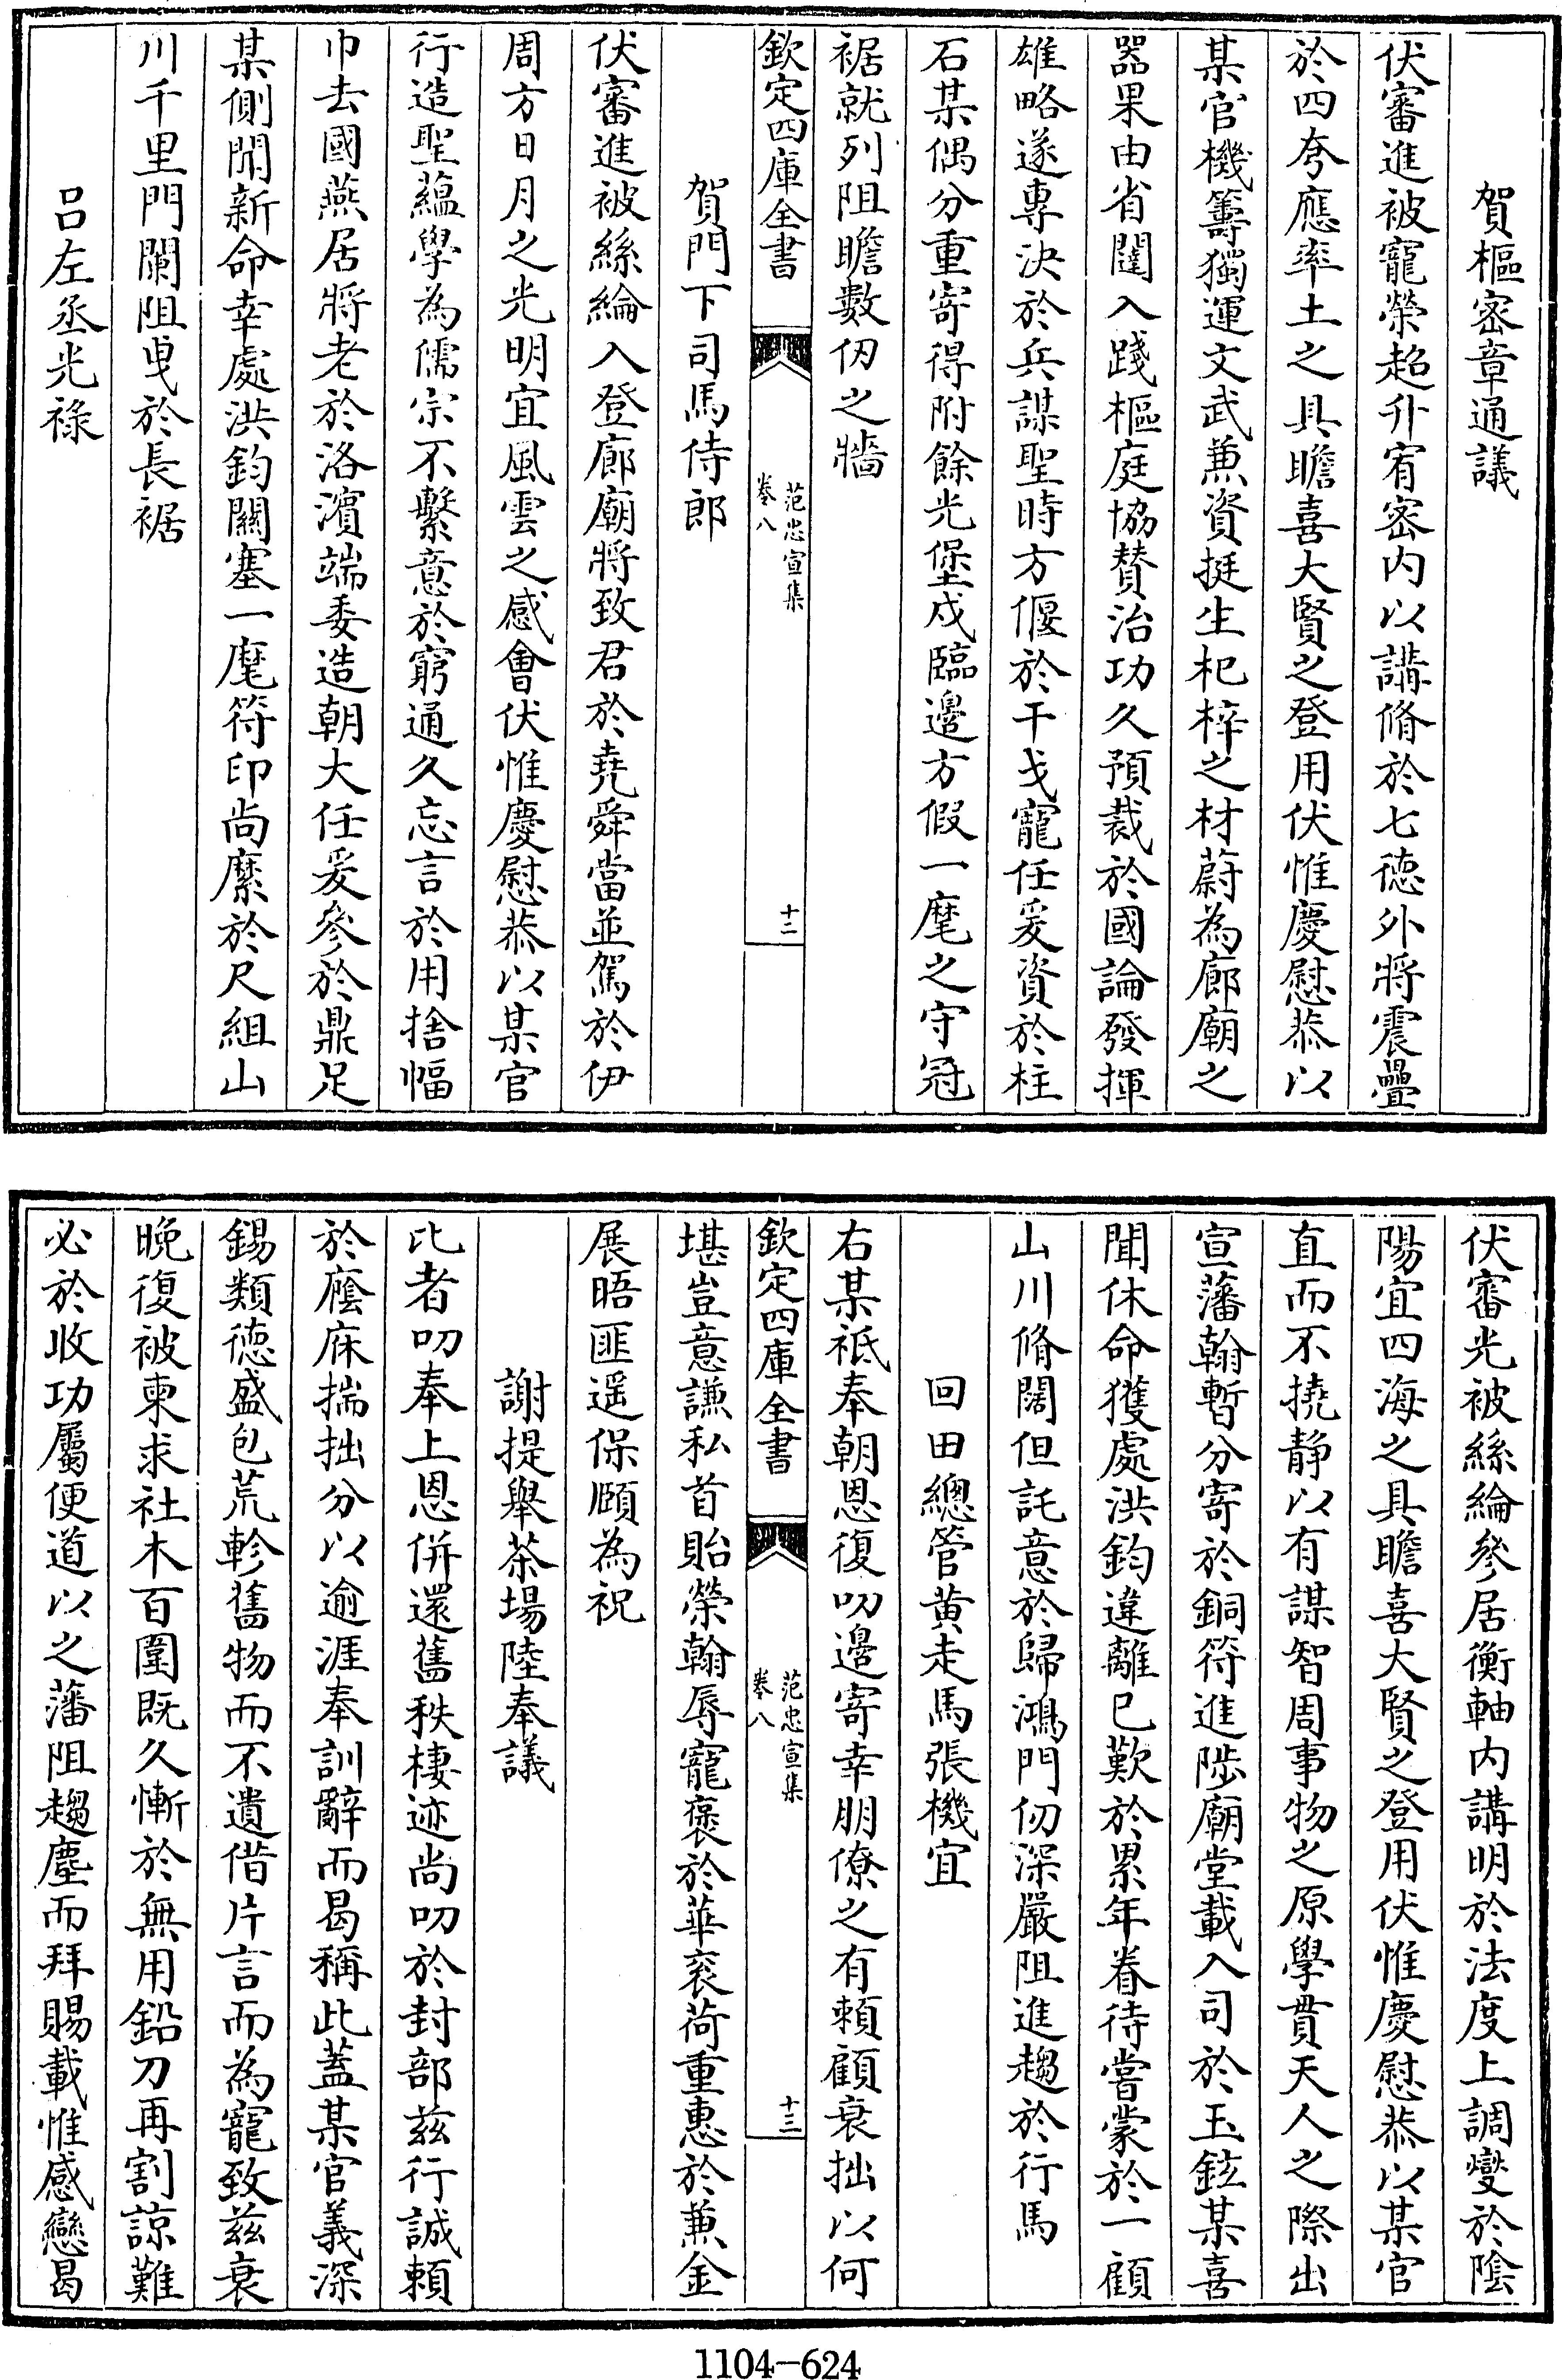 賀樞密章通議
伏審進被寵榮超升宥密内以講脩於七徳外將震疊
於四夸應率土之具瞻喜大賢之登用伏惟慶慰恭以
某官機籌獨運文武兼資挺生杞梓之材蔚為廊廟之
器果由省闥入踐樞庭協賛治功久預裁於國論發揮
雄略遂專決於兵謀聖時方偃於干戈寵任爰資於柱
石某偶分重寄得附餘光堡戍臨邊方假一麾之守冠
裾就列阻瞻數仞之牆
欽定四庫全書
范忠宣集
卷八
十二
賀門下司馬侍郎
伏審進被絲綸入登廊廟將致君於堯舜當並駕於伊
周方日月之光明宜風雲之感會伏惟慶慰恭以某官
行造聖藴學為儒宗不繫意於窮通久忘言於用捨幅
巾去國燕居將老於洛濱端委造朝大任爰參於鼎足
某側聞新命幸處洪鈞關塞一麾符印尚縻於尺組山
川千里門闌阻曵於長裾
呂左丞光祿
伏審光被絲綸參居衡軸内講明於法度上調燮於隂
陽宜四海之具瞻喜大賢之登用伏惟慶慰恭以某官
直而不撓静以有謀智周事物之原學貫天人之際出
宣藩翰暫分寄於銅符進陟廟堂載入司於玉鉉某喜
聞休命獲處洪鈞違離已歎於累年眷待嘗蒙於一顧
山川脩闊但託意於歸鴻門仞深嚴阻進趨於行馬
回田總管黄走馬張機宜
右某祗奉朝恩復叨邊寄幸朋僚之有賴顧衰拙以何
欽定四庫全書
范忠宣集
卷八
十三
堪豈意謙私首貽榮翰辱寵褒於華衮荷重惠於兼金
展晤匪遥保頤為祝
謝提舉茶場陸奉議
比者叨奉上恩併還舊秩棲迹尚叨於封部兹行誠賴
於廕庥揣拙分以逾涯奉訓辭而曷稱此蓋某官義深
錫類德盛包荒軫舊物而不遺借片言而為寵致兹衰
晚復被柬求社木百圍既久慚於無用鉛刀再割諒難
必於收功屬便道以之藩阻趨塵而拜賜載惟感戀曷
1104-624